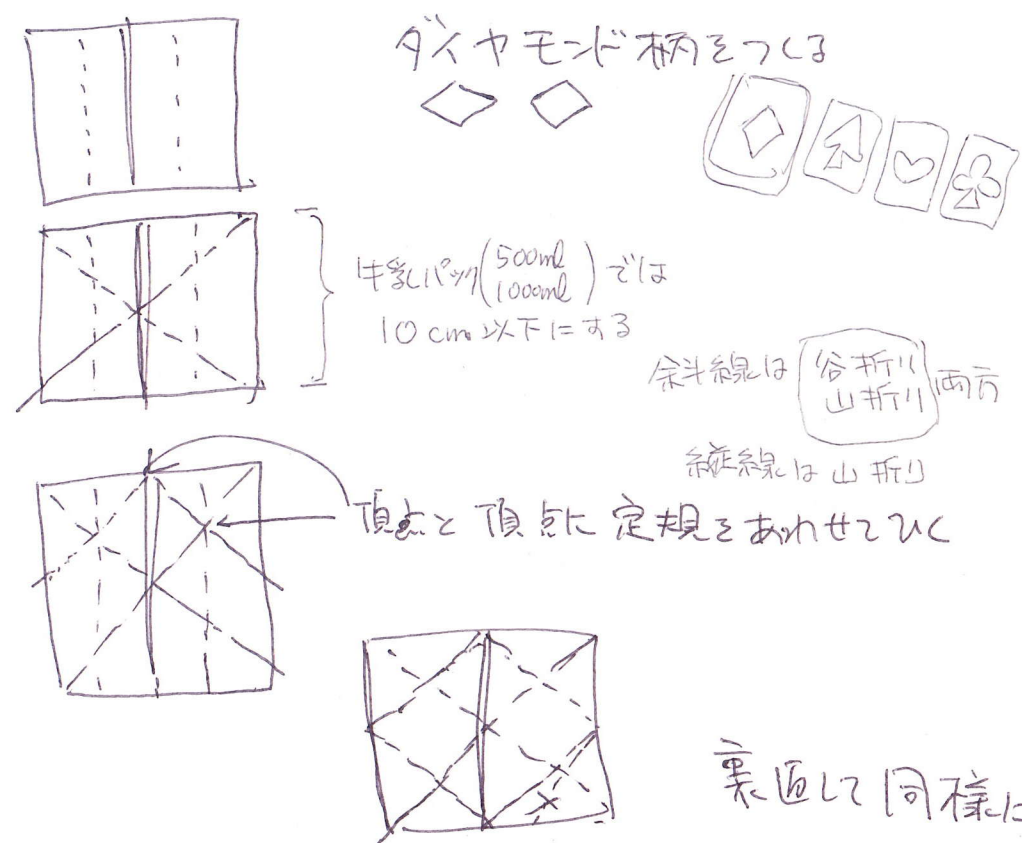 ダイヤモンド柄をつくる
牛乳パック(500ml 1000ml)では
10cm以下にする
斜線は 谷折り 山折り 両方
縦線は山折り
頂点と頂点に定規をあわせてひく
裏返して同様に